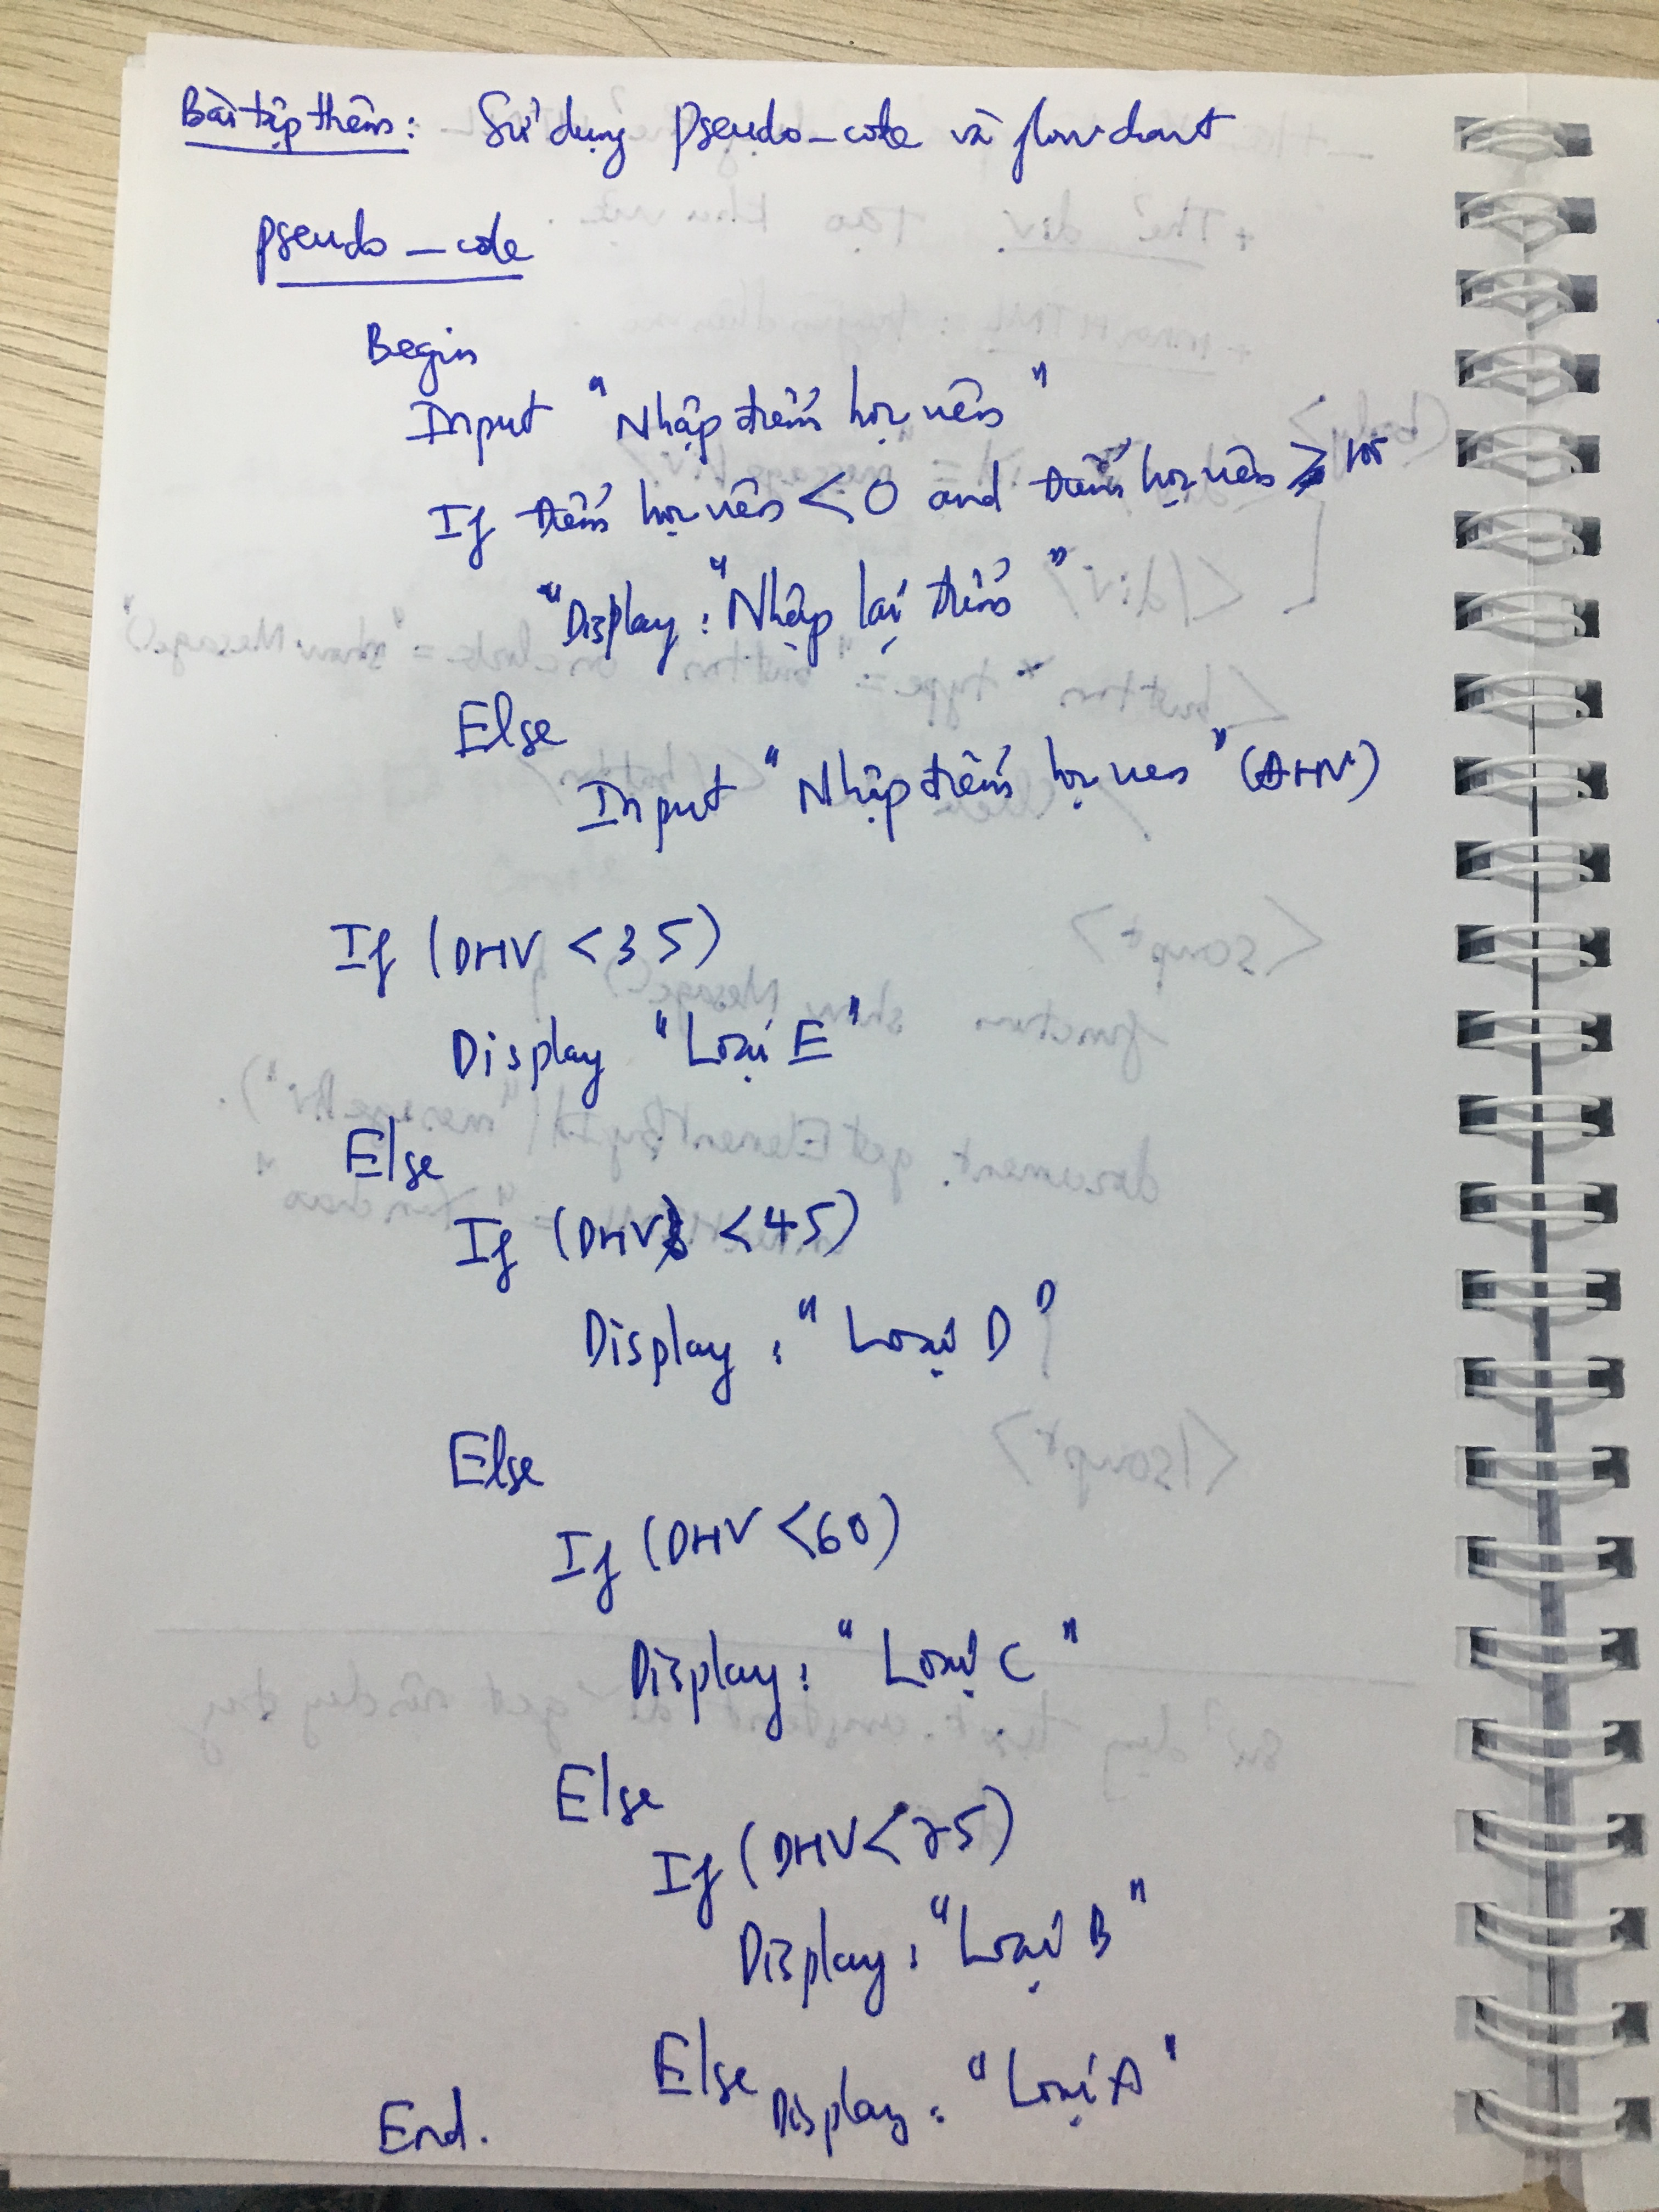 Bài tập thêm: Sử dụng Pseudo_code và flowchart
pseudo_code
Begin
Input "Nhập điểm học viên"
If điểm học viên < 0 and điểm học viên >
"Display: "Nhập lại điểm"
Else
Input "Nhập điểm học viên" (ĐHV)
If (DHV < 35)
Display "Loại E"
Else
If (DHV < 45)
Display: "Loại D"
Else
If (DHV < 60)
Display: "Loại C"
Else
If (DHV < 75)
Display: "Loại B"
Else Display: "Loại A"
End.